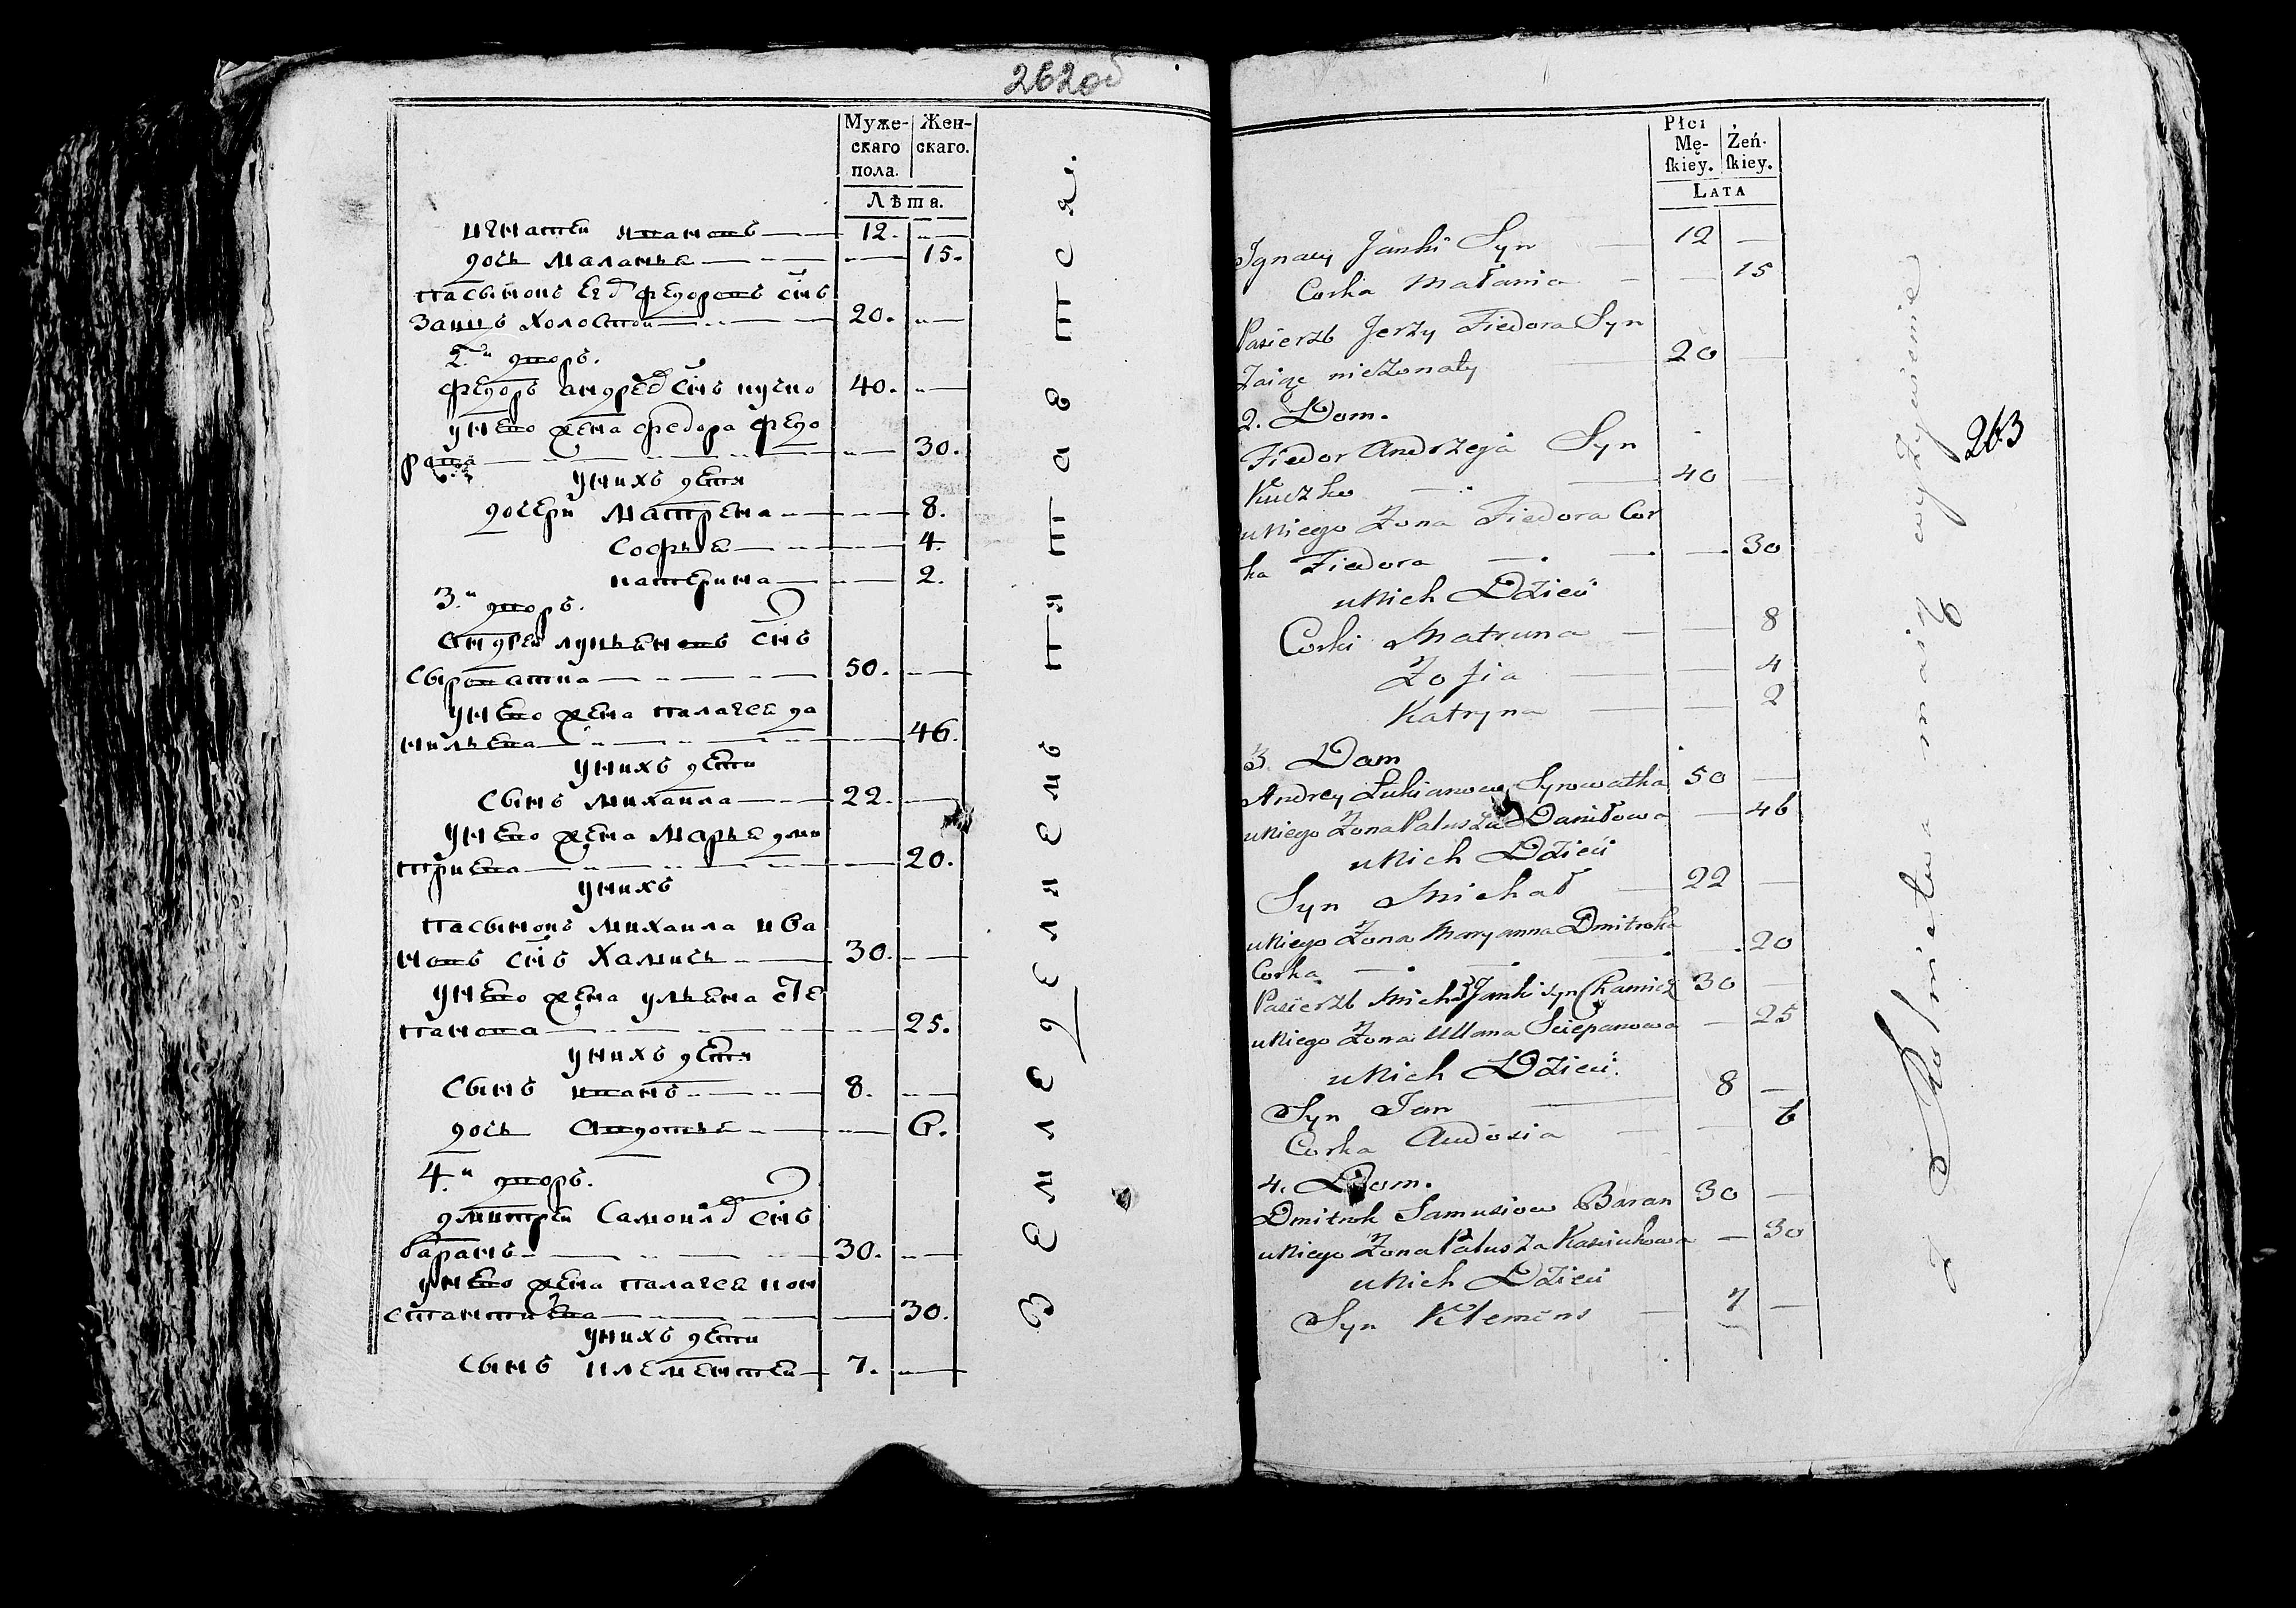 262об
Муже- Жен-
скаго скаго.
пола.
Лѣта.
игнатей ивановъ 12.
дочь маланья 15.
пасынокъ егод федоровъ снъ
Заицъ холостой 20.
2.й дворъ.
федоръ андреев снъ кучко 40.
унево жена федора федо
рова 30.
унихъ дети
дочери матрена 8.
софья 4.
катерина 2.
3.й дворъ.
андрей лукьяновъ снъ
сыроватка 50.
унево жена палагея да
нильева 46.
унихъ дети
сынъ михаила 22.
унево жена марья дми
триева 20.
унихъ
пасынокъ михаила ива
новъ снъ хамичь 30.
унево жена ульяна сте
панова 25.
унихъ дети
сынъ иванъ 8.
дочь авдотья 6.
4.й дворъ.
дмитрей самойлов снъ
баранъ 30.
унево жена палагея кон
стантинева 30.
унихъ дети
сынъ клементей 7.
Земледелиемъ питаетса.
Płci
Mę- Żeń-
ſkiey. ſkiey.
LATA
Jgnacy Janki Syn 12
Corka Małania 15
Pasierzb Jerzy Fiedora Syn
Zaiąc nieżonaty 20
2. Dom.
Fiedor Andrzeja Syn
Kuczko 40
uNiego Żona Fiedora Cor
ka Fiedora 30
uNich Dzieci
Corki Matruna 8
Zofia 4
Katryna 2
3. Dom
Andrey Lukianow Syrowatka 50
uNiego Żona Palusza Daniłowa 46
uNich Dzieci
Syn Michał 22
uNiego Żona Maryanna Dmitroka
Corka 20
Pasierzb Mich: Janki syn Chamicz 30
uNiego Żona Ullana Sciepanowa 25
uNich Dzieci.
Syn Jan 8
Corka Audosia 6
4. Dom.
Dmitrok Samusiow Baran 30
uNiego Żona Palusza Kasciukowa 30
uNich Dzieci
Syn Klemens 7
z Rolnictwa maią wyżywienie
263